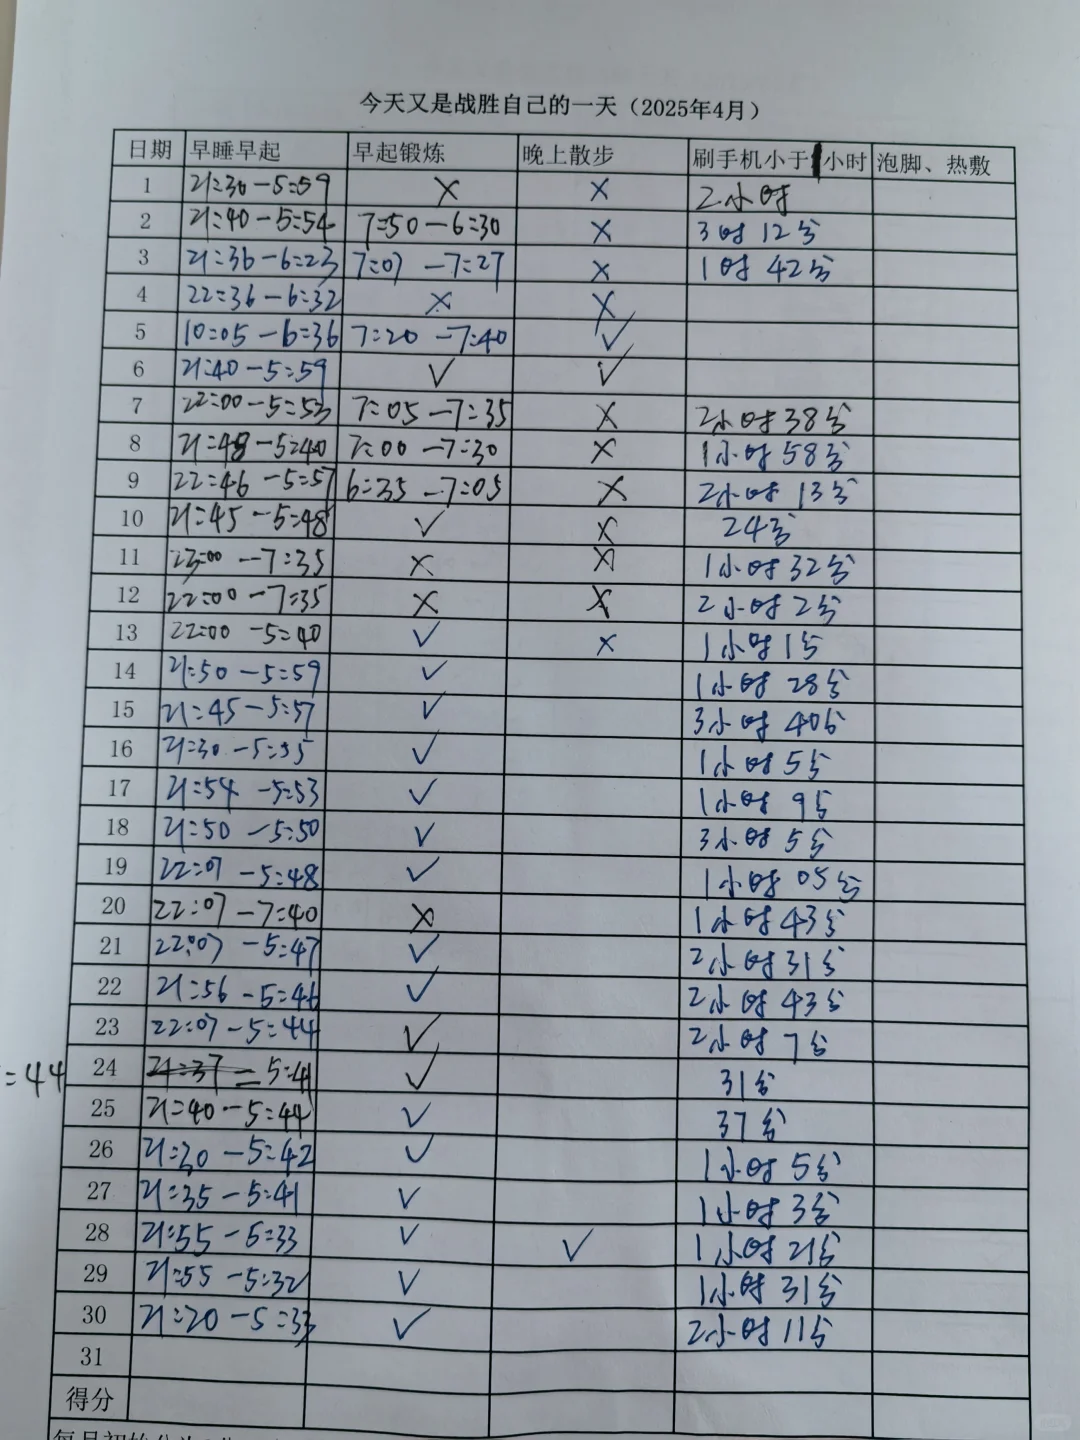 今天又是战胜自己的一天（2025年4月）
日期 早睡早起 早起锻炼 晚上散步 刷手机小于1小时 泡脚、热敷
1 21:30-5:59 × × 2小时
2 21:40-5:54 7:50-6:30 × 3时12分
3 21:36-6:23 7:07-7:27 × 1时42分
4 22:36-6:32 × ×
5 10:05-6:36 7:20-7:40 ✓
6 21:40-5:59 ✓ ✓
7 22:00-5:53 7:05-7:35 × 2小时38分
8 21:48-5:40 7:00-7:30 × 1小时58分
9 22:46-5:57 6:35-7:05 × 2小时13分
10 21:45-5:48 ✓ × 24分
11 23:00-7:35 × × 1小时32分
12 22:00-7:35 × × 2小时2分
13 22:00-5:40 ✓ × 1小时1分
14 21:50-5:59 ✓ 1小时28分
15 21:45-5:57 ✓ 3小时40分
16 21:30-5:35 ✓ 1小时5分
17 21:54-5:53 ✓ 1小时9分
18 21:50-5:50 ✓ 3小时5分
19 22:07-5:48 ✓ 1小时05分
20 22:07-7:40 × 1小时43分
21 22:07-5:47 ✓ 2小时31分
22 21:56-5:46 ✓ 2小时43分
23 22:07-5:44 ✓ 2小时7分
:44 24 21:37-5:41 ✓ 31分
25 21:40-5:44 ✓ 37分
26 21:30-5:42 ✓ 1小时5分
27 21:35-5:41 ✓ 1小时3分
28 21:55-5:33 ✓ ✓ 1小时21分
29 21:55-5:32 ✓ 1小时31分
30 21:20-5:33 ✓ 2小时11分
31
得分